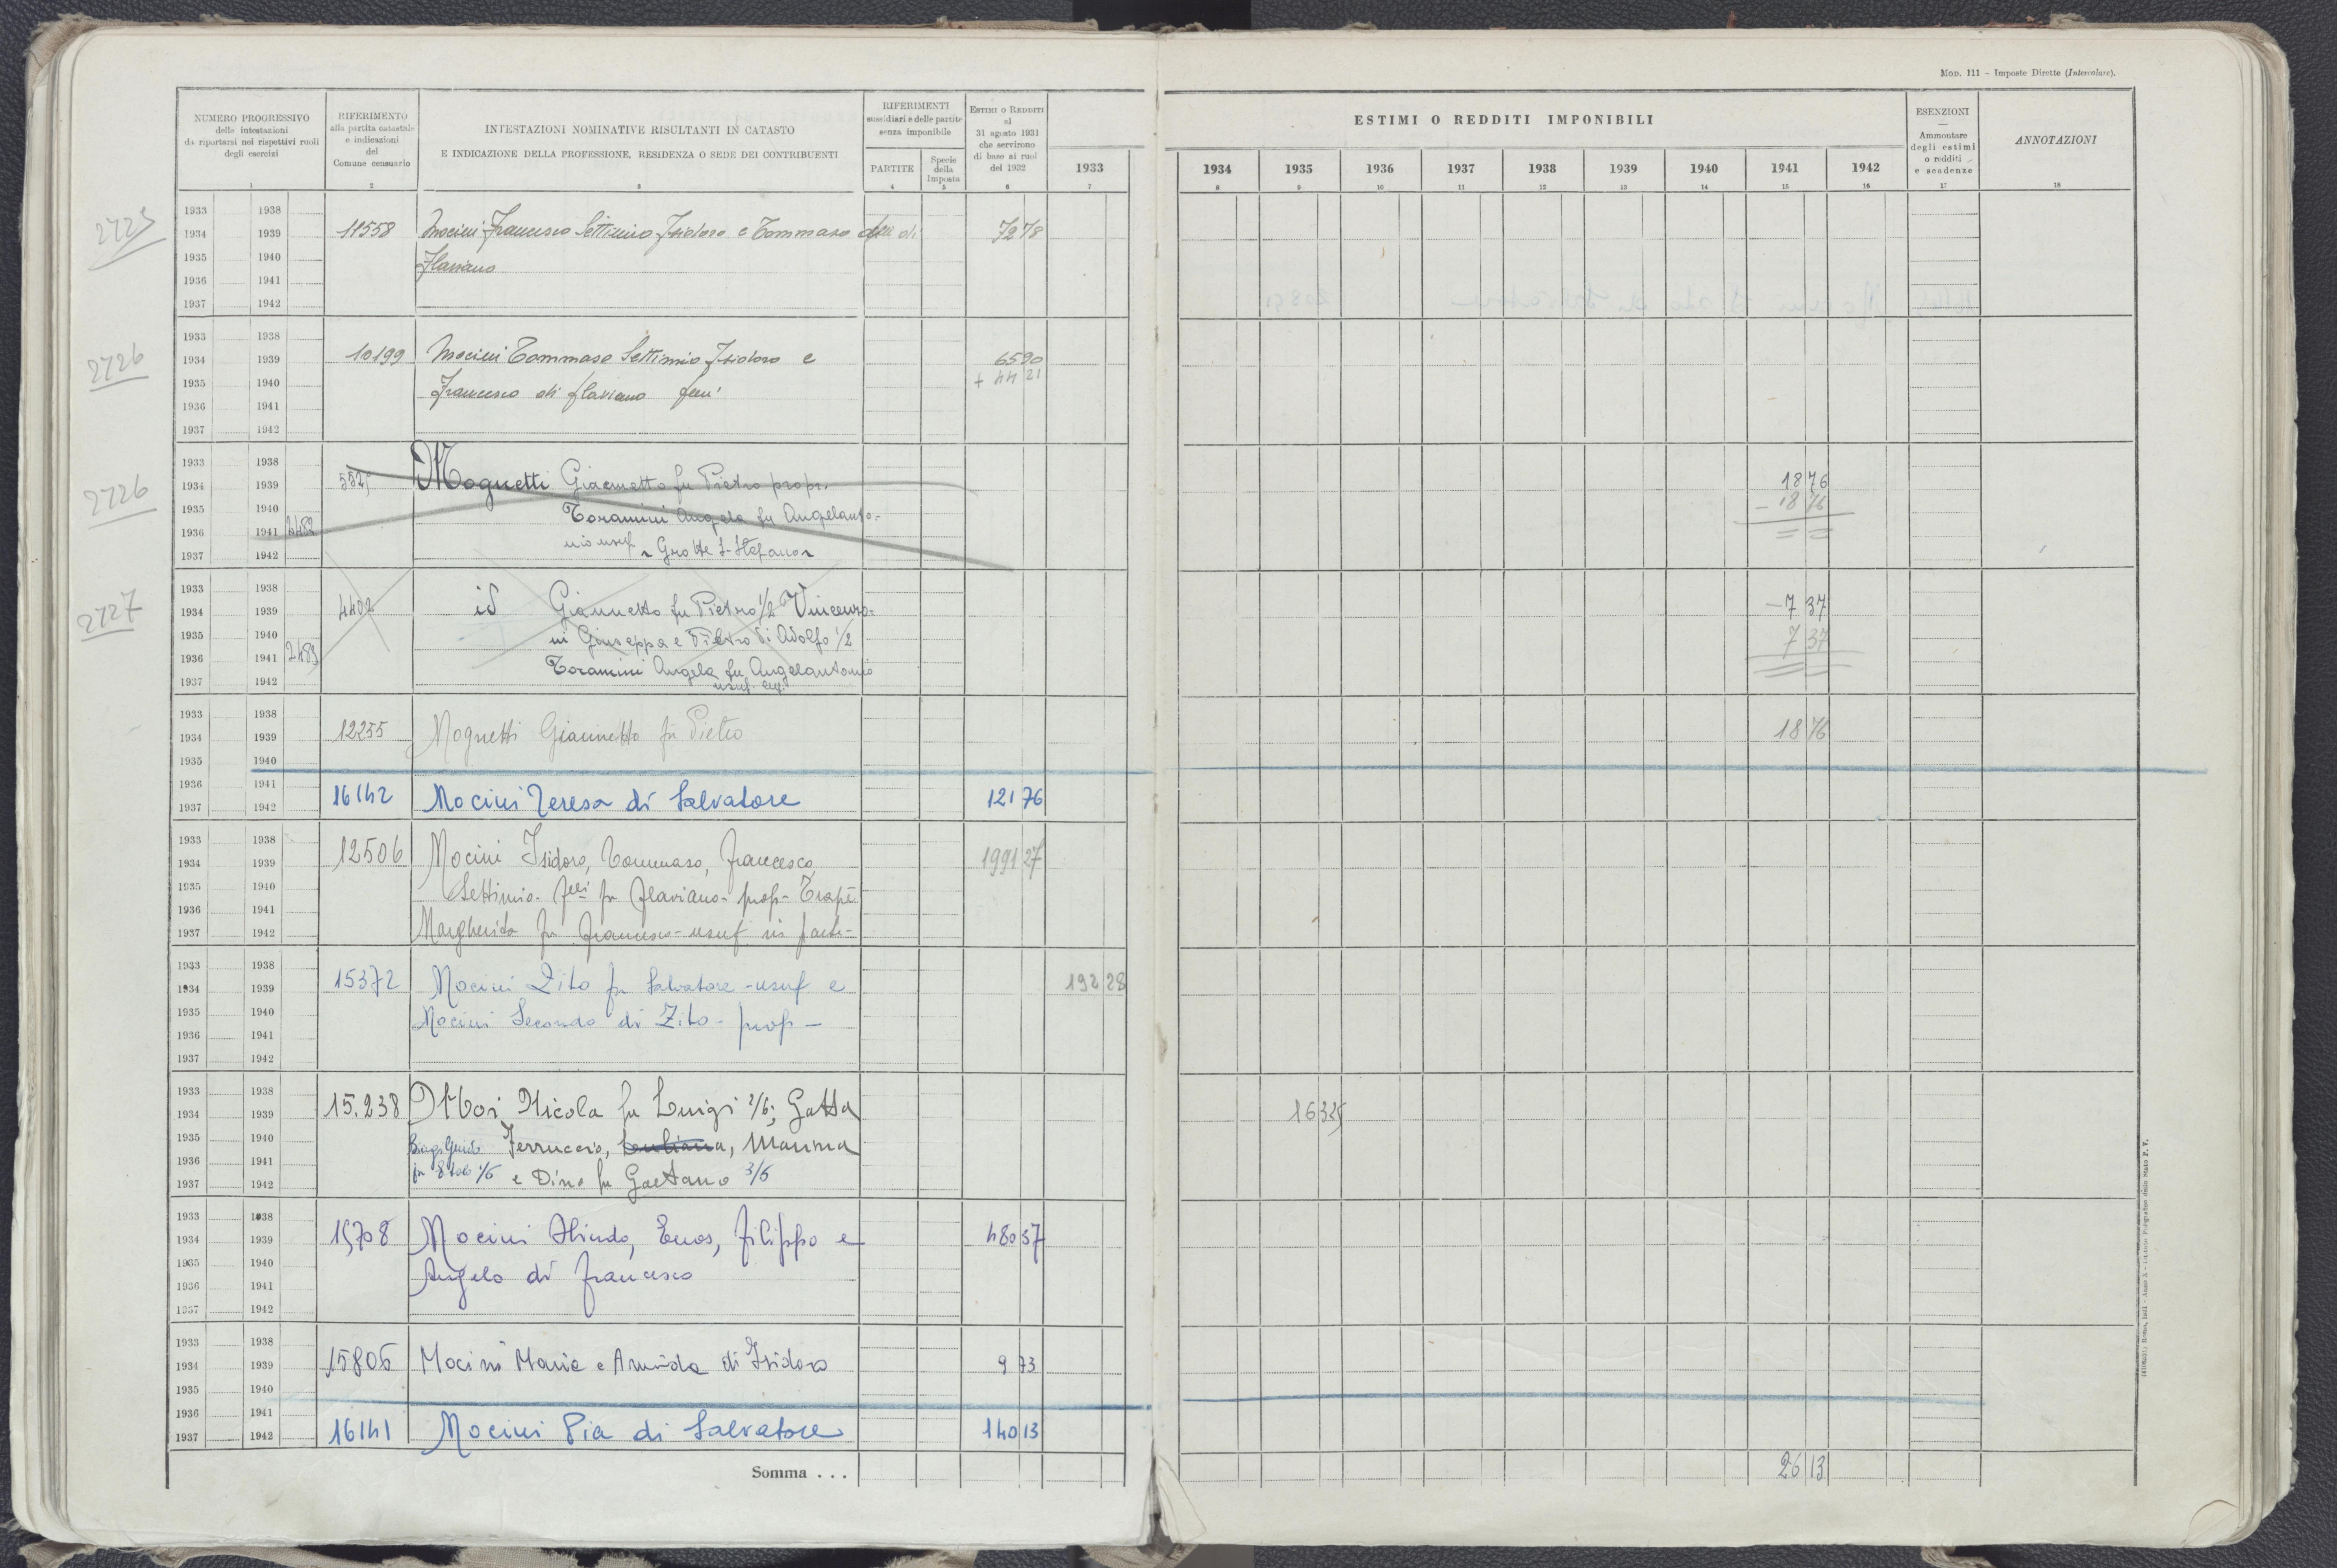 Mod. 111 - Imposte Dirette (Intercalare).
NUMERO PROGRESSIVO
delle intestazioni
da riportarsi nei rispettivi ruoli
degli esercizi
1
RIFERIMENTO
alla partita catastale
e indicazioni
del
Comune censuario
2
INTESTAZIONI NOMINATIVE RISULTANTI IN CATASTO
E INDICAZIONE DELLA PROFESSIONE, RESIDENZA O SEDE DEI CONTRIBUENTI
3
RIFERIMENTI
sussidiari e delle partite
senza imponibile
PARTITE
4
Specie
della
Imposta
5
Estimi o Redditi
al
31 agosto 1931
che servirono
di base ai ruoli
del 1932
6
1933
7
ESTIMI O REDDITI IMPONIBILI
1934 1935 1936 1937 1938 1939 1940 1941 1942
8 9 10 11 12 13 14 15 16
ESENZIONI
Ammontare
degli estimi
o redditi
e scadenze
17
ANNOTAZIONI
18
2725
1933 1938
1934 1939 11558 Mocini Francesco Settimio Isidoro e Tommaso di 72 78
1935 1940 Flaviano
1936 1941
1937 1942
2726
1933 1938
1934 1939 10199 Mocini Tommaso Settimio Isidoro e 65 90
1935 1940 Francesco di Flaviano + 44 21
1936 1941
1937 1942
2726
1933 1938
1934 1939 5525 Mognetti Giannetto fu Pietro propr. 18 76
1935 1940 Toramini Angela fu Angelanto- - 18 76
1936 1941 2482 nio usuf. Grotte S. Stefano = =
1937 1942
2727
1933 1938
1934 1939 4402 id Giannetto fu Pietro 1/2 Vincenzo- - 7 37
1935 1940 ni Giuseppa e Pietro di Adolfo 1/2 7 37
1936 1941 2483 Toramini Angela fu Angelantonio
1937 1942 usuf.
1933 1938
1934 1939 12255 Mognetti Giannetto fu Pietro 18 76
1935 1940
1936 1941
1937 1942 16142 Mocini Teresa di Salvatore 121 76
1933 1938
1934 1939 12506 Mocini Isidoro, Tommaso, Francesco, 1991 27
1935 1940 Settimio - flli fu Flaviano - prop - Trapè
1936 1941
1937 1942 Margherita fu Francesco - usuf in parte -
1933 1938
1934 1939 15372 Mocini Zito fu Salvatore - usuf e 192 28
1935 1940 Mocini Secondo di Zito - prop -
1936 1941
1937 1942
1933 1938
1934 1939 15.238 Mori Nicola fu Luigi 2/6; Gatta 16 35
1935 1940 Biagi Guido Ferruccio, Marina
1936 1941
1937 1942 e Dino fu Gaetano 3/6
1933 1938
1934 1939 15708 Mocini Olindo, Enos, Filippo e 480 37
1935 1940 Angelo di Francesco
1936 1941
1937 1942
1933 1938
1934 1939 15806 Mocini Maria e Armida di Isidoro 9 73
1935 1940
1936 1941
1937 1942 16141 Mocini Pia di Salvatore 140 13
Somma . . . 26 13